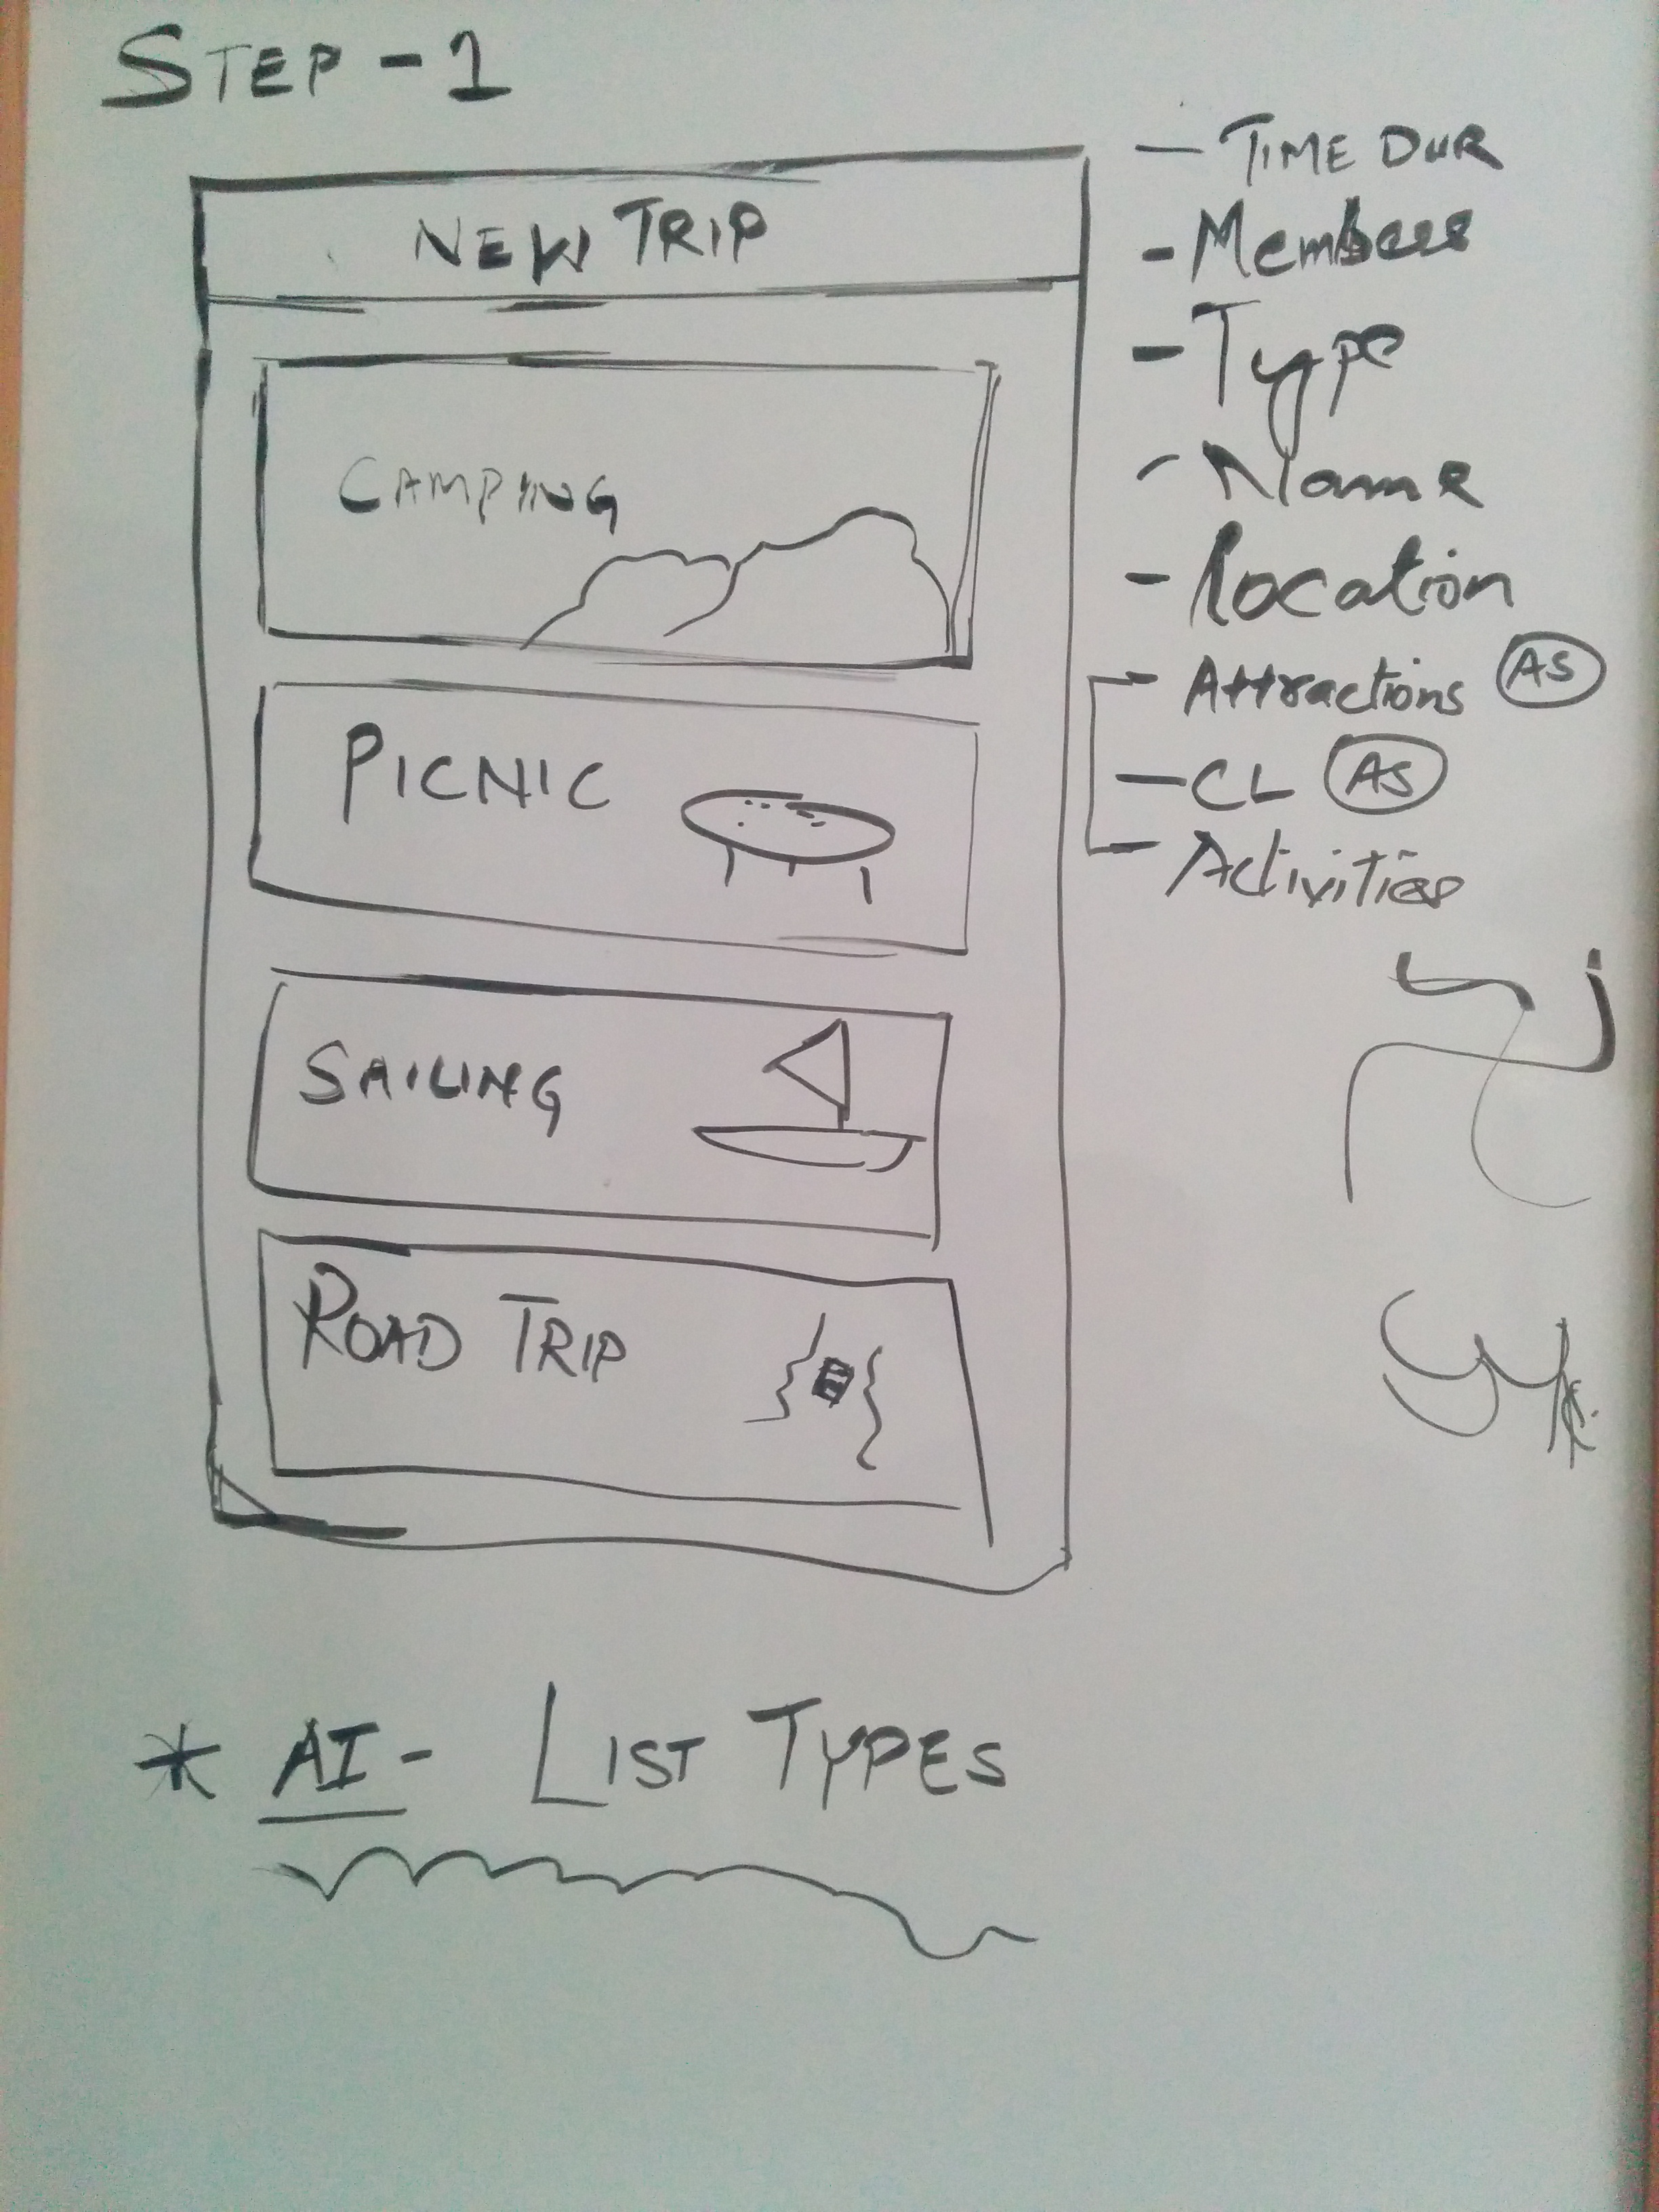 STEP - 1
NEW TRIP
CAMPING
PICNIC
SAILING
ROAD TRIP
- TIME DUR
- Members
- Type
- Name
- Location
- Attractions AS
- CL AS
- Activities
* AI - LIST TYPES